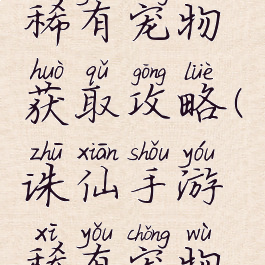 稀有宠物
huò qǔ gōng lüè
获取攻略(
zhū xiān shǒu yóu
诛仙手游
xī yǒu chǒng wù
稀有宠物